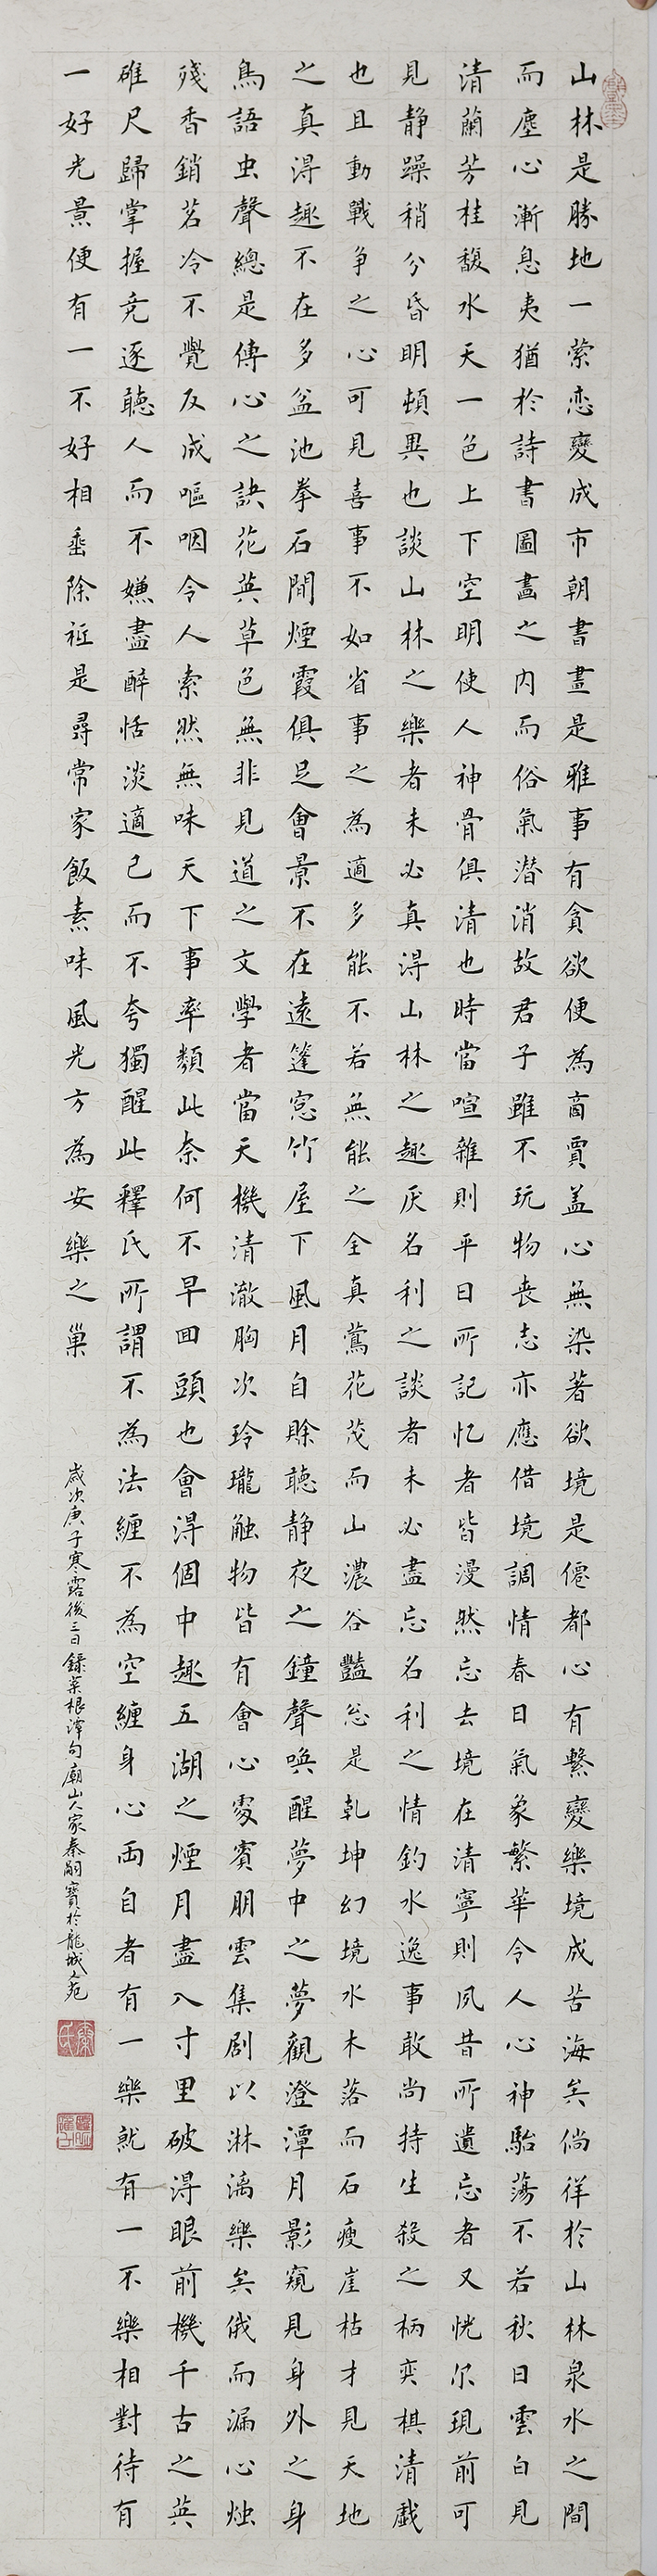 山林是勝地一縈恋變成市朝書畫是雅事有貪欲便為商賈盖心無染著欲境是僊都心有繫變樂境成苦海矣倘徉於山林泉水之間
而塵心漸息夷猶於詩書圖畫之内而俗氣潜消故君子雖不玩物丧志亦應借境調情春日氣象繁華令人心神駘蕩不若秋日雲白見
清蘭芳桂馥水天一色上下空明使人神骨俱清也時當喧雜則平日所記忆者皆漫然忘去境在清寧則夙昔所遺忘者又恍尔現前可
見静躁稍分昏明頓異也談山林之樂者未必真得山林之趣厌名利之談者未必盡忘名利之情釣水逸事敢尚持生殺之柄奕棋清戲
也且動戰争之心可見喜事不如省事之為適多能不若無能之全真鶯花茂而山濃谷豔总是乹坤幻境水木落而石瘦崖枯才見天地
之真得趣不在多盆池拳石間煙霞俱足會景不在遠篷窓竹屋下風月自賒聽静夜之鐘聲唤醒夢中之夢觀澄潭月影窺見身外之身
鳥語虫聲總是傳心之訣花英草色無非見道之文學者當天機清澈胸次玲瓏触物皆有會心處賓朋雲集剧以淋漓樂矣俄而漏心烛
殘香銷茗冷不覺反成嘔咽令人索然無味天下事率類此奈何不早回頭也會得個中趣五湖之煙月盡入寸里破得眼前機千古之英
碓尺歸掌握竞逐聽人而不嫌盡醉恬淡適己而不夸獨醒此釋氏所謂不為法纏不為空纏身心两自者有一樂就有一不樂相對待有
一好光景便有一不好相乗除衹是尋常家飯素味風光方為安樂之巢
歲次庚子寒露後三日錄菜根潭句廟山人家秦嗣寶於龍城之苑